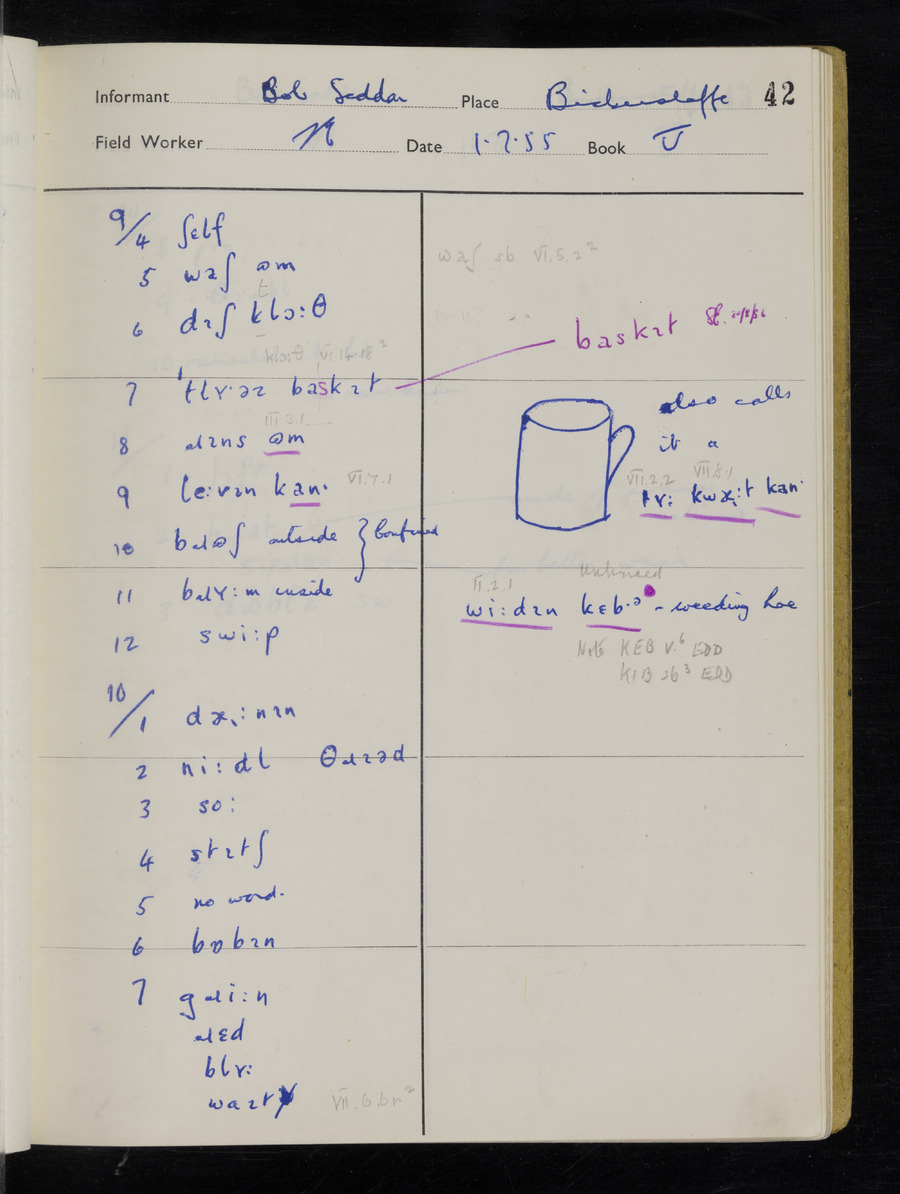 Informant Bob Seddon Place Bickerstaffe 42
Field Worker Date 1.7.55 Book V
9/4 ʃɛlf
5 waʃ əm
6 dɪʃ klɔ:θ
klɔ:θ VI.14.18²
7 baskɪt
III.3.1
8 ɹɪns əm
9 le:vɪn kan· VI.7.1
10 bɹʊʃ outside } Confirmed
11 bɹʏ:m inside
12 swi:p
10/1 dæ:nɪn
2 ni:dl θɹɪəd
3 so:
4 stɪtʃ
5 no word.
6 bɒbɪn
7 gɹi:n
ɹɛd
blʏ:
VII.6.6n²
waʃ sb VI.5.2²
baskɪt
also calls
it a
VII.2.2 VII.8.1
kan·
II.2.1
wi:dɪn kɛb·ə - weeding hoe
Note KEB v.⁶ EDD
KIB sb³ EDD